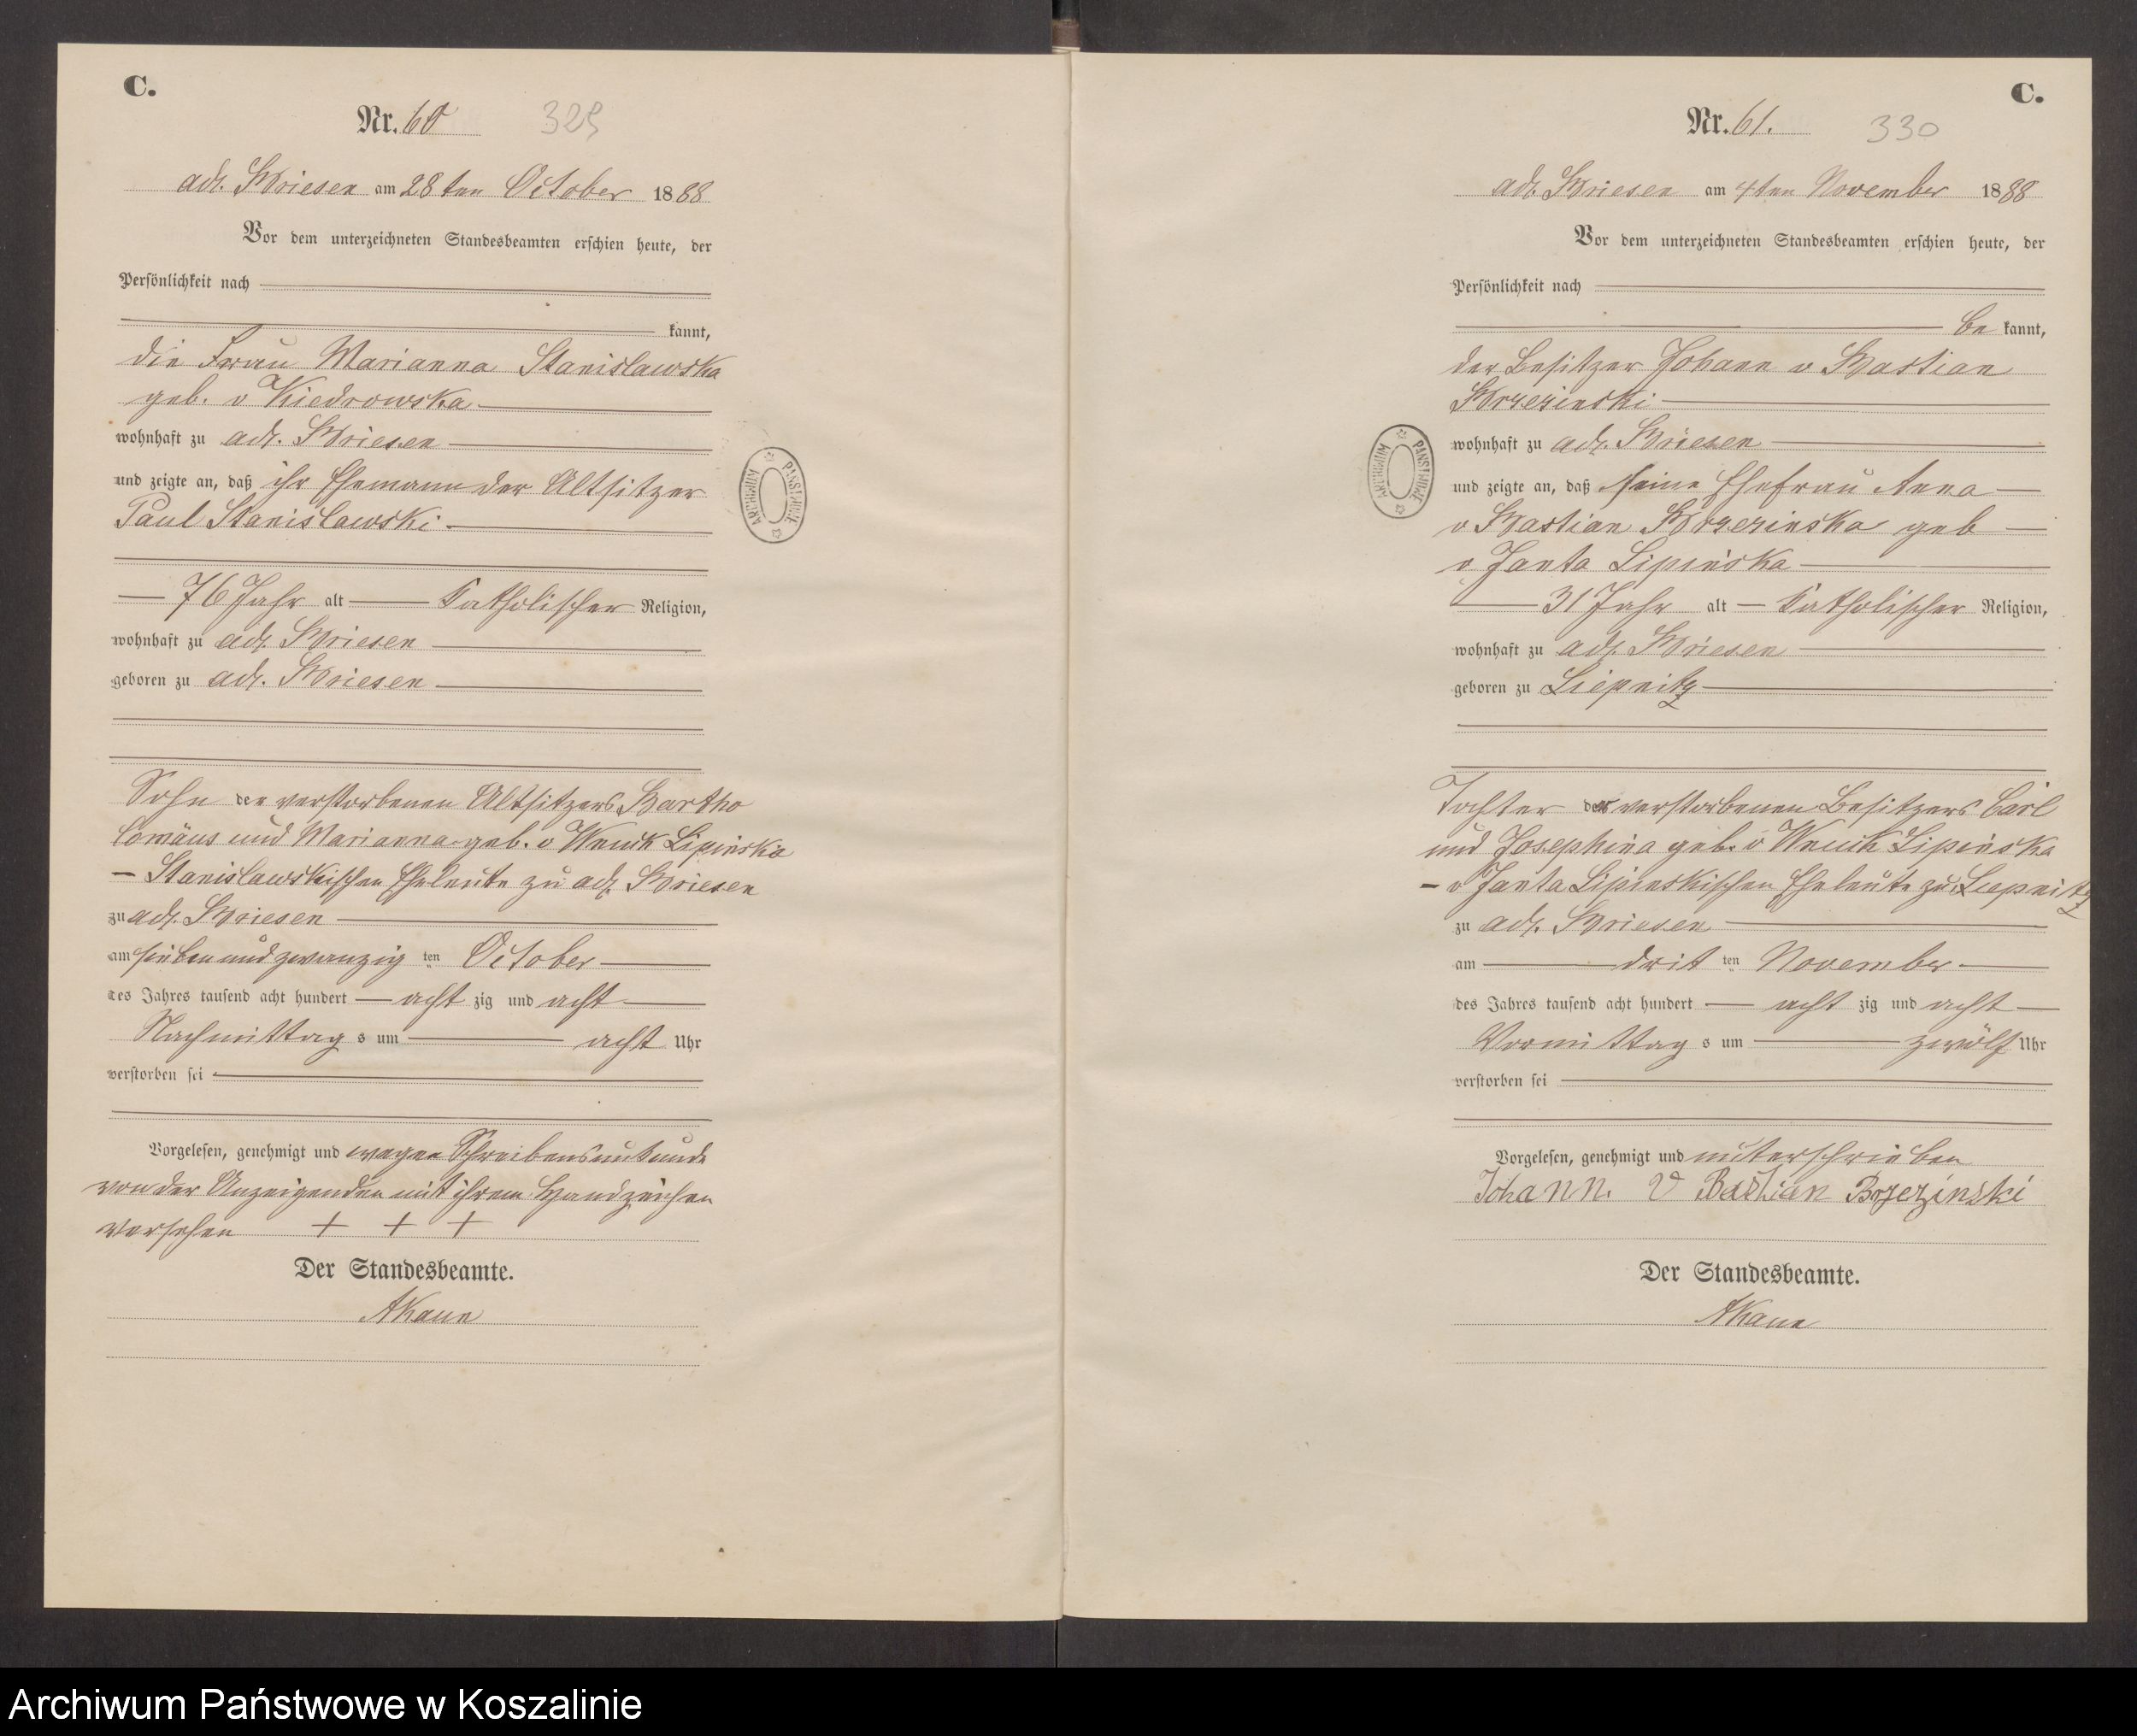 C.
Nr. 60 329
adl. Briesen am 28ten October 1888
Vor dem unterzeichneten Standesbeamten erschien heute, der
Persönlichkeit nach
kannt,
die Frau Marianna Stanislawska
geb. v Kiedrowska
wohnhaft zu adl. Briesen
und zeigte an, daß ihr Ehemann der Altsitzer
Paul Stanislawski
76 Jahr alt katholischer Religion,
wohnhaft zu adl. Briesen
geboren zu adl. Briesen
Sohn der verstorbenen Altsitzers Bartho
lomäus und Marianna geb. v Wnuck Lipinska
- Stanislawskischen Eheleute zu adl. Briesen
zu adl. Briesen
am sieben und zwanzig ten October
des Jahres tausend acht hundert acht zig und acht
Nachmittag s um acht Uhr
verstorben sei
Vorgelesen, genehmigt und wegen Schreibensunkunde
von der Anzeigenden mit ihrem Handzeichen
versehen + + +
Der Standesbeamte.
AKaun
ARCHIWUM PAŃSTWOWE
C.
Nr. 61. 330
adl. Briesen am 4ten November 1888
Vor dem unterzeichneten Standesbeamten erschien heute, der
Persönlichkeit nach
be kannt,
der Besitzer Johann v Bastian
Brzezinski
wohnhaft zu adl. Briesen
und zeigte an, daß seine Ehefrau Anna
v Bastian Brzezinska geb
v Janta Lipinska
31 Jahr alt katholischer Religion,
wohnhaft zu adl. Briesen
geboren zu Liepnitz
Tochter der verstorbenen Besitzers Carl
und Josephina geb. v Wnuck Lipinska
- v Janta Lipinskischen Eheleute zu Liepnitz
zu adl. Briesen
am drit ten November
des Jahres tausend acht hundert acht zig und acht
Vormittag s um zwölf Uhr
verstorben sei
Vorgelesen, genehmigt und unterschrieben
Johann. v Bastian Brzezinski
Der Standesbeamte.
AKaun
ARCHIWUM PAŃSTWOWE
Archiwum Państwowe w Koszalinie